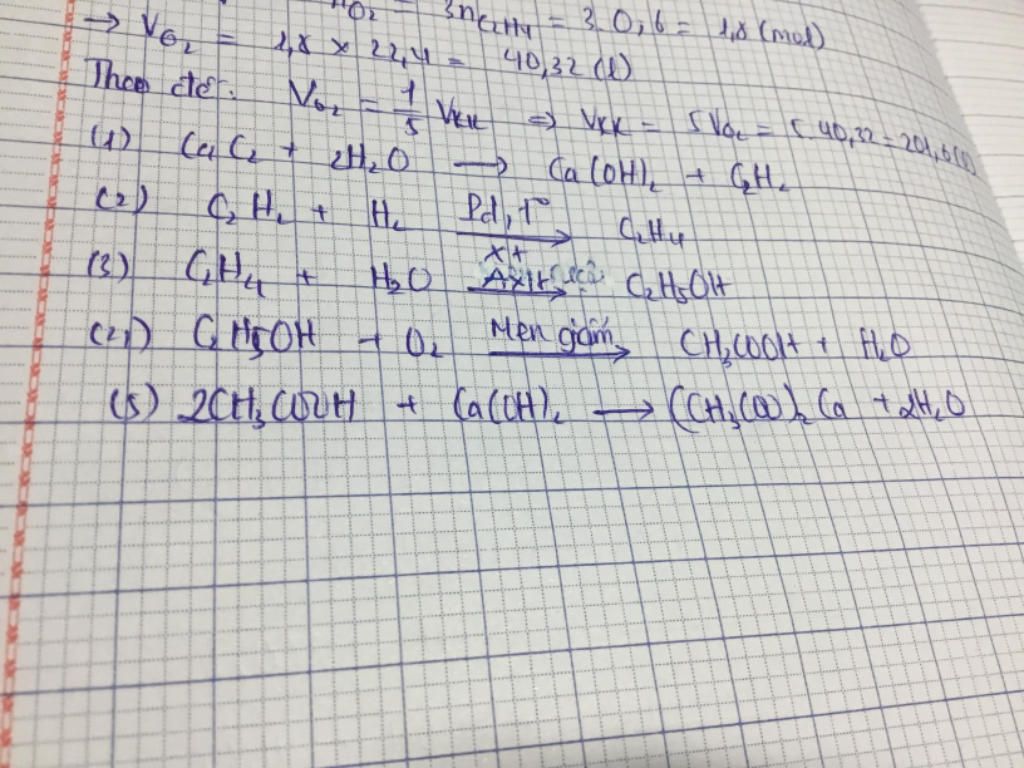 O₂ = 3nC₂H₄ = 3.0,6 = 1,8 (mol)
→ VO₂ = 1,8 × 22,4 = 40,32 (l)
Theo đề: VO₂ = 1/5 VKK ⇒ VKK = 5VO₂ = 5.40,32 = 201,6 (l)
(1) CaC₂ + 2H₂O → Ca(OH)₂ + C₂H₂
(2) C₂H₂ + H₂ Pd, t° → C₂H₄
xt
(3) C₂H₄ + H₂O Axit → C₂H₅OH
(4) C₂H₅OH + O₂ Men giấm → CH₃COOH + H₂O
(5) 2CH₃COOH + Ca(OH)₂ → (CH₃COO)₂Ca + 2H₂O